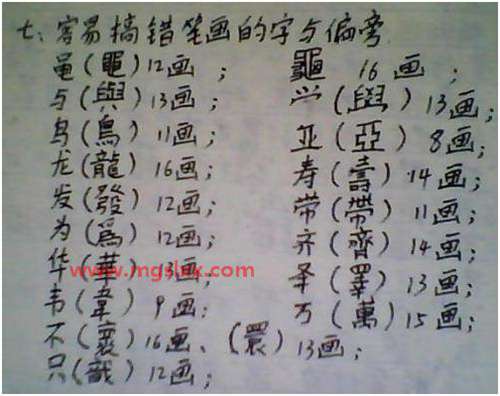 七、容易搞错笔画的字与偏旁
黾(黽)12画; 龜 16画;
与(與)13画; 13画;
鸟(鳥)11画; 亚(亞)8画;
龙(龍)16画; 寿(壽)14画;
发(發)12画; 带(帶)11画;
为(爲)12画; 齐(齊)14画;
华(華)画; (睪)13画;
www.mgslxx.com
韦(韋)9画; 万(萬)15画;
不(褱)16画、(睘)13画;
只(戠)12画;